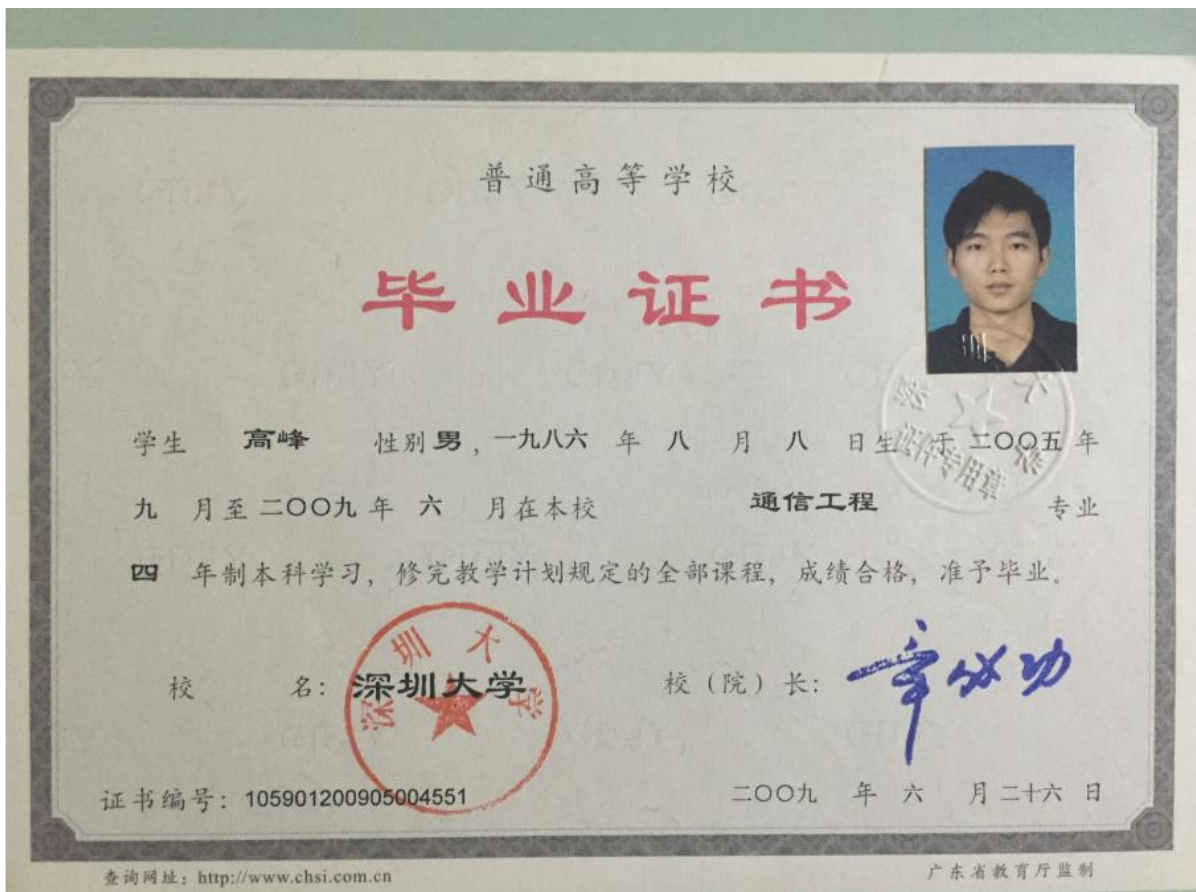 普通高等学校
毕业证书
学生 高峰 性别 男，一九八六 年 八 月 八 日生，于 二〇〇五 年
九 月至 二〇〇九 年 六 月在本校 通信工程 专业
四 年制本科学习，修完教学计划规定的全部课程，成绩合格，准予毕业。
深圳大学
证件专用章
校 名：深圳大学 校（院）长：章必功
深圳大学
证书编号：105901200905004551 二〇〇九 年 六 月 二十六 日
查询网址：http://www.chsi.com.cn 广东省教育厅监制